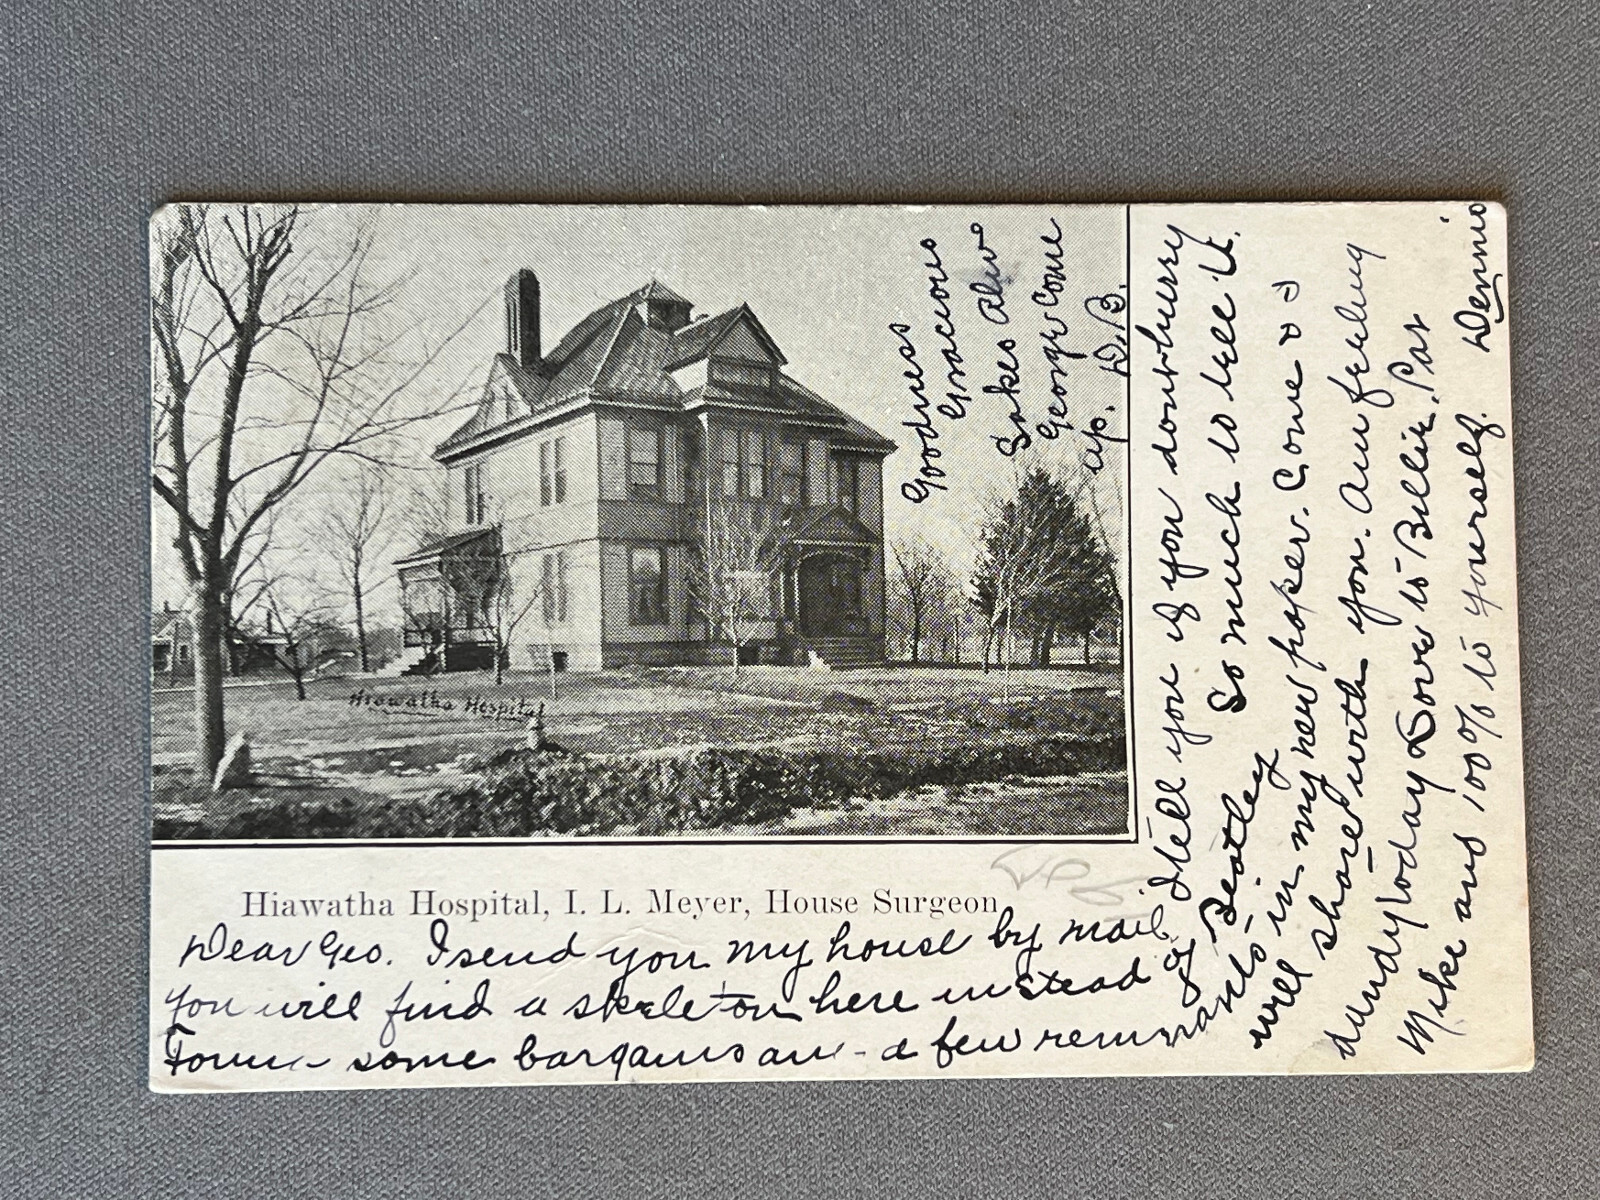 Goodness
Gracious
Sakes Alive
George Come
up. D.B.
Hiawatha Hospital
Hiawatha Hospital, I. L. Meyer, House Surgeon
Dear Geo. I send you my house by mail
you will find a skeleton here instead of
some bargains an - a few remnants
I tell you if you dont hurry
So much to tell U.
will in my new paper. Come
share with you. Am feeling
dandy today Love to Billie, Pas
Mike and 100% to yourself. Dennio